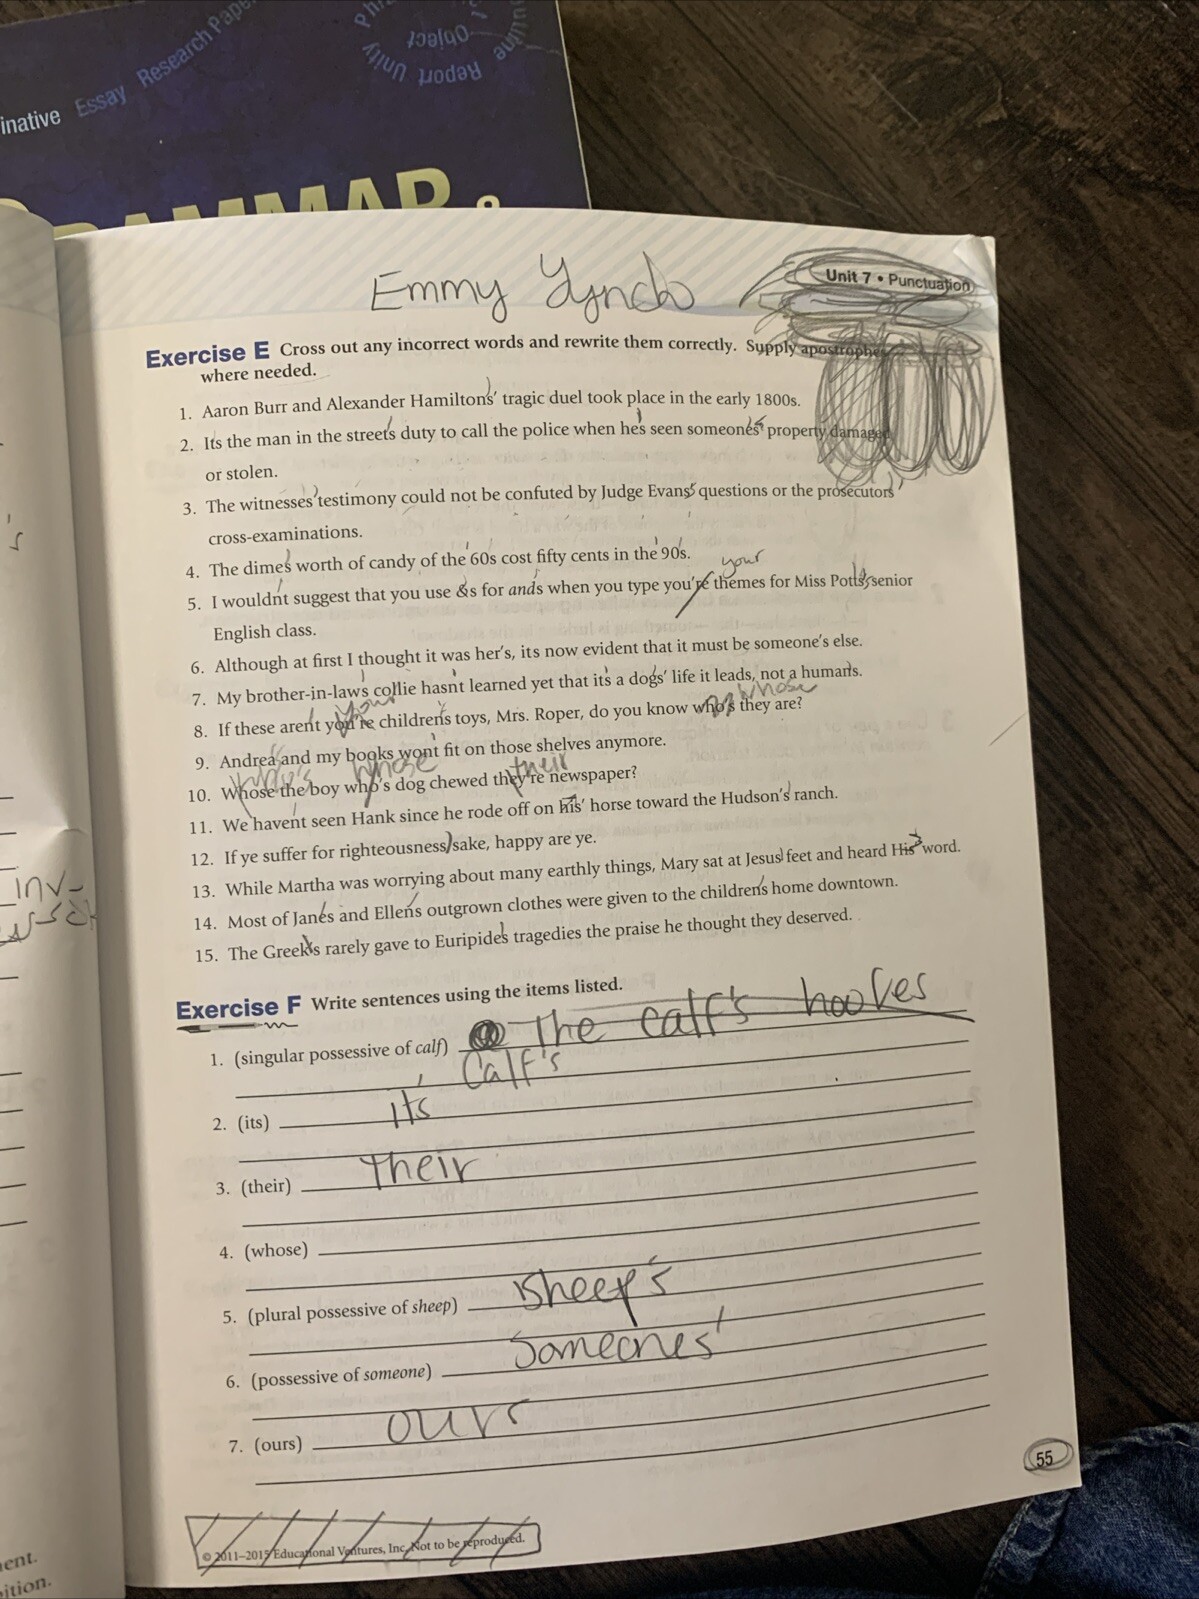 inative Essay Research Pape
Object
Report Unity
GRAMMAR
Emmy Lynch
Unit 7 • Punctuation
Exercise E Cross out any incorrect words and rewrite them correctly. Supply apostrophes
where needed.
1. Aaron Burr and Alexander Hamiltons' tragic duel took place in the early 1800s.
2. Its the man in the street's duty to call the police when he's seen someone's property damaged
or stolen.
3. The witnesses' testimony could not be confuted by Judge Evans' questions or the prosecutors'
cross-examinations.
4. The dime's worth of candy of the '60s cost fifty cents in the '90s.
your
5. I wouldn't suggest that you use &s for and's when you type you're themes for Miss Potts' senior
English class.
6. Although at first I thought it was her's, its now evident that it must be someone's else.
7. My brother-in-law's collie hasn't learned yet that it's a dogs' life it leads, not a human's.
your whose
8. If these aren't you're children's toys, Mrs. Roper, do you know who's they are?
9. Andrea's and my books won't fit on those shelves anymore.
Who's whose their
10. Whose the boy who's dog chewed they're newspaper?
11. We haven't seen Hank since he rode off on his' horse toward the Hudson's' ranch.
12. If ye suffer for righteousness' sake, happy are ye.
13. While Martha was worrying about many earthly things, Mary sat at Jesus' feet and heard His' word.
14. Most of Jane's and Ellen's outgrown clothes were given to the children's home downtown.
15. The Greek's rarely gave to Euripide's tragedies the praise he thought they deserved.
Exercise F Write sentences using the items listed.
1. (singular possessive of calf) The calf's hooves
Calf's
2. (its) it's
3. (their) their
4. (whose)
5. (plural possessive of sheep) sheep's
6. (possessive of someone) Someones'
7. (ours) ours
55
© 2011–2015 Educational Ventures, Inc. Not to be reproduced.